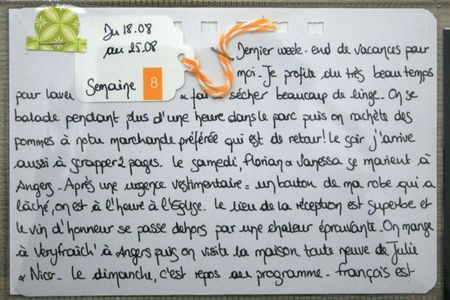 Du 18.08
au 25.08
Semaine 8
Dernier week-end de vacances pour
moi. Je profite du très beau temps
pour laver & faire sécher beaucoup de linge. On se
balade pendant plus d'une heure dans le parc puis on rachète des
pommes à notre marchande préférée qui est de retour! Le soir j'arrive
aussi à scrapper 2 pages. Le samedi, Florian & Vanessa se marient à
Angers. Après une urgence vestimentaire = un bouton de ma robe qui a
lâché, on est à l'heure à l'Eglise. Le lieu de la réception est superbe et
le vin d'honneur se passe dehors par une chaleur éprouvante. On mange
à Veryfraich' à Angers puis on visite la maison toute neuve de Julie
& Nico. Le dimanche, c'est repos au programme. François est